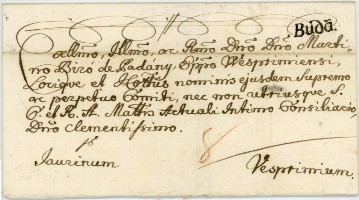 Budã.
Exllmo, Illmo, ac Rmo Dno Dno Marti-
no Biro de Padány, Eppo Wesprimiensi,
Locique et Cottus nominis ejusdem Supremo
ac perpetuo Comiti, nec non utriusque S.
C. et R. A. Mattis Actuali Intimo Consiliario
Dno Clementissimo.
Jaurinum
8
Vesprimium.